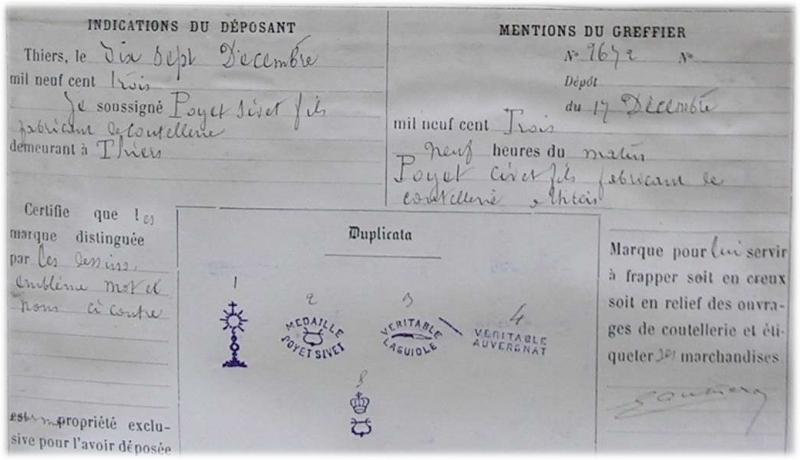 INDICATIONS DU DÉPOSANT
Thiers, le Dix sept Décembre
mil neuf cent trois
Je soussigné Poyet Sivet fils
fabricant de coutellerie
demeurant à Thiers
Certifie que les
marque distinguée
par les dessins,
emblème mot et
noms ci contre
propriété exclu-
sive pour l'avoir déposée
MENTIONS DU GREFFIER
N° 9672 N°
Dépôt
du 17 Décembre
mil neuf cent Trois
neuf heures du matin
Poyet civet fils fabricant de
coutellerie a Thiers
Duplicata
1
2
MEDAILLE
POYET SIVET
3
VERITABLE
LAGUIOLE
4
VERITABLE
AUVERGNAT
Marque pour lui servir
à frapper soit en creux
soit en relief des ouvra-
ges de coutellerie et éti-
queter ses marchandises